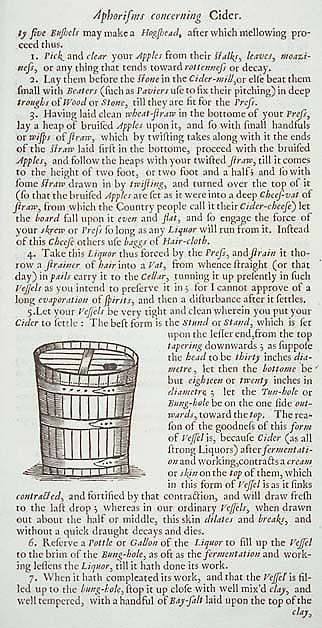 Aphoriſms concerning Cider.
ty five Buſhels may make a Hogſhead, after which mellowing pro-
ceed thus.
1. Pick and clear your Apples from their ſtalks, leaves, moazi-
neſs, or any thing that tends toward rottenneſs or decay.
2. Lay them before the ſtone in the Cider-mill, or elſe beat them
ſmall with Beaters (ſuch as Paviers uſe to fix their pitching) in deep
troughs of Wood or Stone, till they are fit for the Preſs.
3. Having laid clean wheat-ſtraw in the bottome of your Preſs,
lay a heap of bruiſed Apples upon it, and ſo with ſmall handfuls
or wiſps of ſtraw, which by twiſting takes along with it the ends
of the ſtraw laid firſt in the bottome, proceed with the bruiſed
Apples, and follow the heaps with your twiſted ſtraw, till it comes
to the height of two foot, or two foot and a half; and ſo with
ſome ſtraw drawn in by twiſting, and turned over the top of it
(ſo that the bruiſed Apples are ſet as it were into a deep Cheeſ-vat of
ſtraw, from which the Country people call it their Cider-cheeſe) let
the board fall upon it even and flat, and ſo engage the force of
your skrew or Preſs ſo long as any Liquor will run from it. Inſtead
of this Cheeſe others uſe baggs of Hair-cloth.
4. Take this Liquor thus forced by the Preſs, and ſtrain it tho-
row a ſtrainer of hair into a Vat, from whence ſtraight (or that
day) in pails carry it to the Cellar, tunning it up preſently in ſuch
Veſſels as you intend to preſerve it in; for I cannot approve of a
long evaporation of ſpirits, and then a diſturbance after it ſettles.
5. Let your Veſſels be very tight and clean wherein you put your
Cider to ſettle: The beſt form is the Stund or Stand, which is ſet
upon the leſſer end, from the top
tapering downwards; as ſuppoſe
the head to be thirty inches dia-
metre, let then the bottome be
but eighteen or twenty inches in
diametre; let the Tun-hole or
Bung-hole be on the one ſide out-
wards, toward the top. The rea-
ſon of the goodneſs of this form
of Veſſel is, becauſe Cider (as all
ſtrong Liquors) after fermentati-
on and working, contracts a cream
or skin on the top of them, which
in this form of Veſſel is as it ſinks
contracted, and fortified by that contraction, and will draw freſh
to the laſt drop; whereas in our ordinary Veſſels, when drawn
out about the half or middle, this skin dilates and breaks, and
without a quick draught decays and dies.
6. Reſerve a Pottle or Gallon of the Liquor to fill up the Veſſel
to the brim of the Bung-hole, as oft as the fermentation and work-
ing leſſens the Liquor, till it hath done its work.
7. When it hath compleated its work, and that the Veſſel is fil-
led up to the bung-hole, ſtop it up cloſe with well mix'd clay, and
well tempered, with a handful of Bay-ſalt laid upon the top of the
clay,